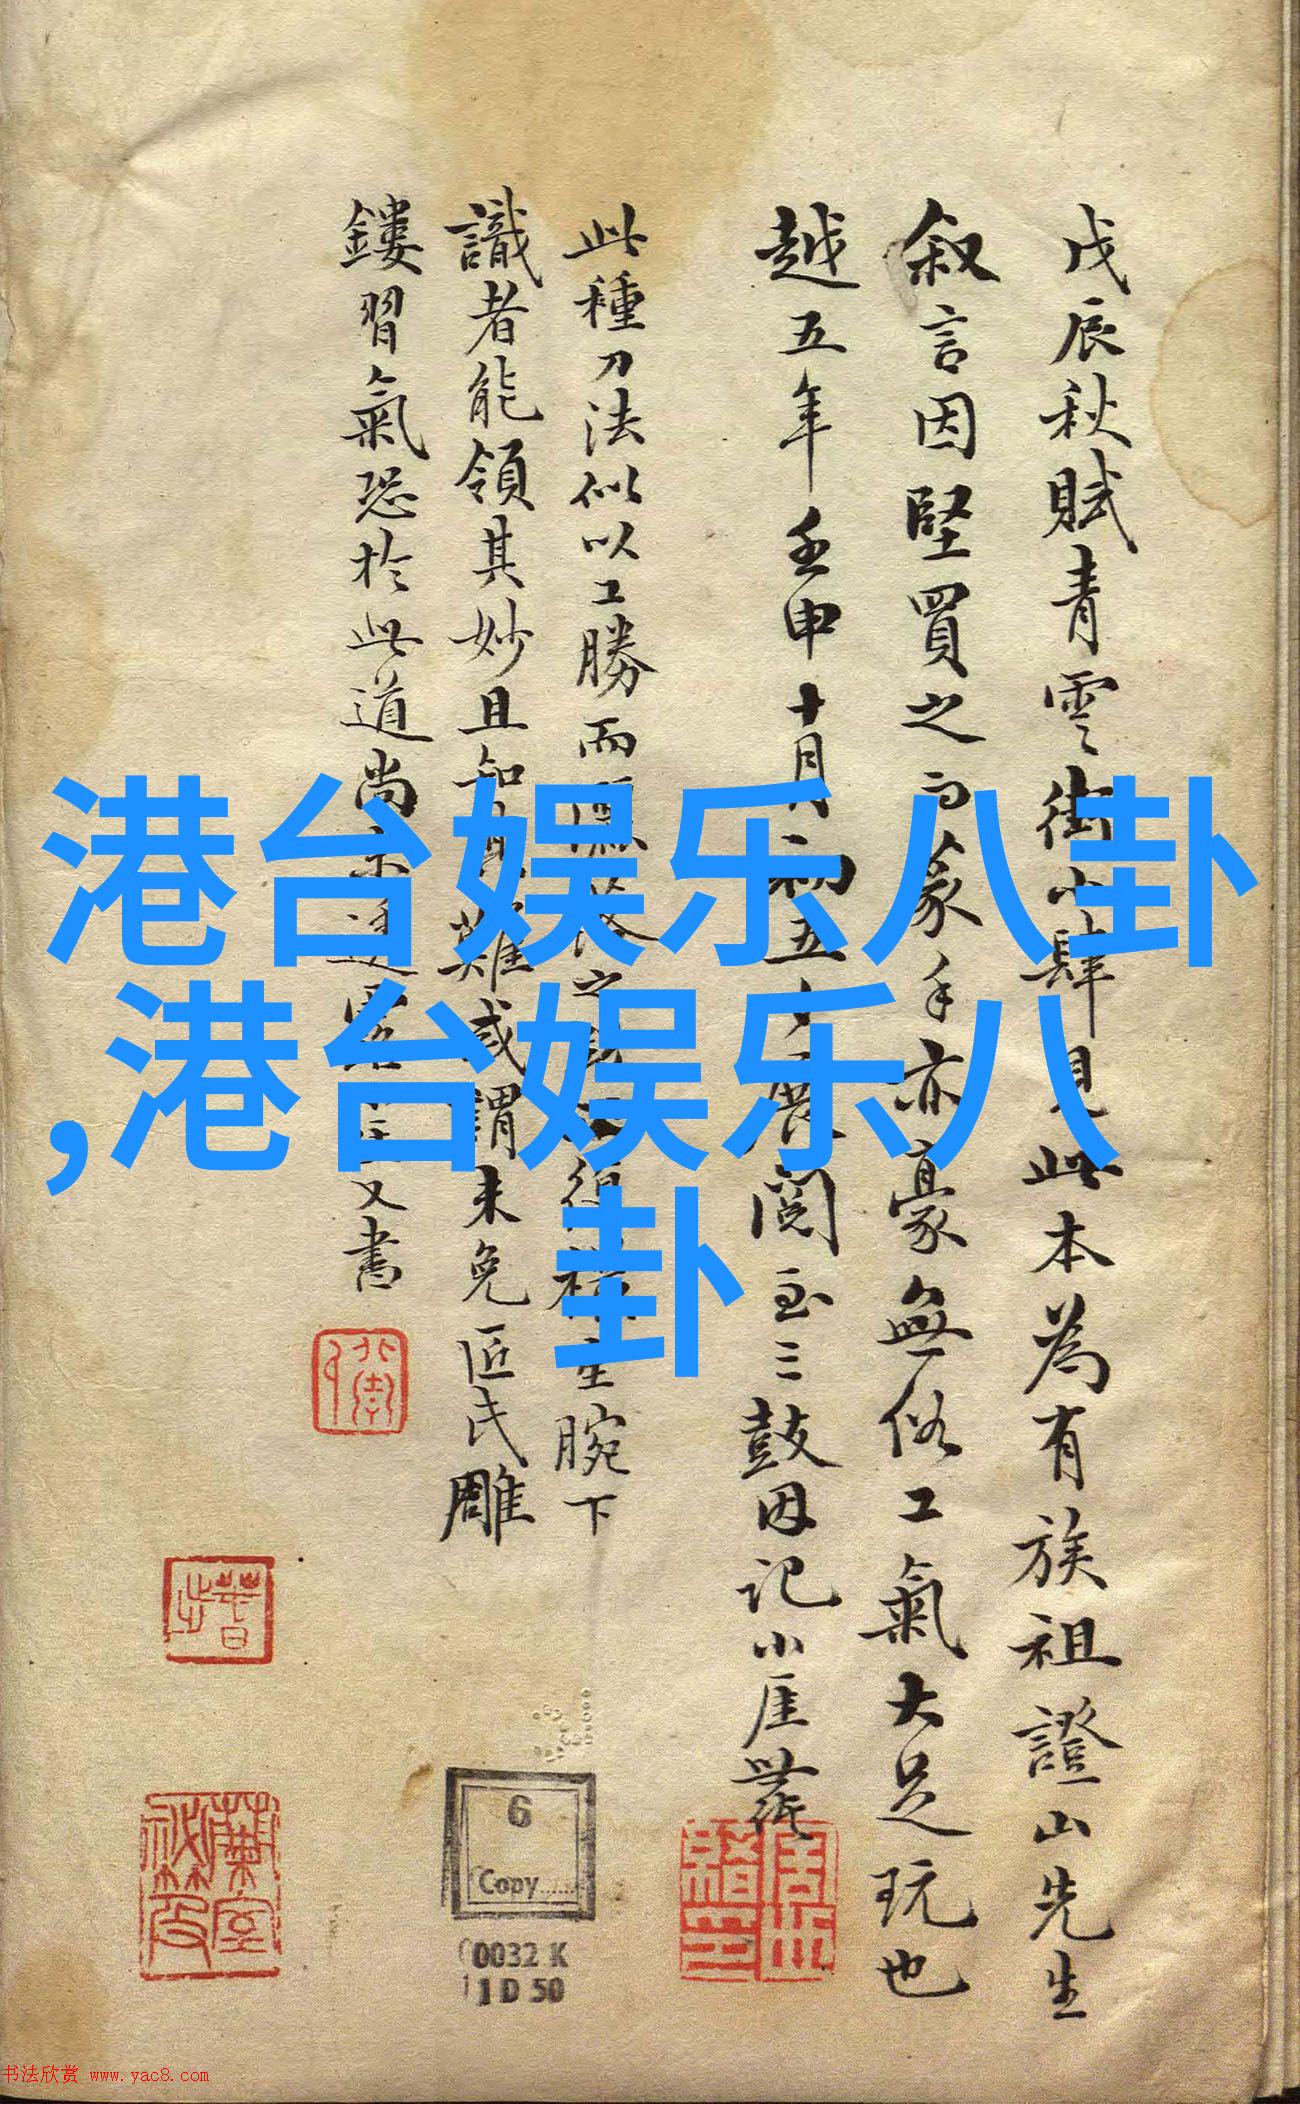 戊辰秋賦青雲街小肆見此本為有族祖證山先生
叙言因堅買之而篆手亦豪無俗工氣大足玩也
越五年壬申十月初五夕展閱至三鼓因記小厓
此種刀法似以工勝而之腕下
識者能領其妙且知其難或謂未免匠氏雕
鏤習氣恐於此道尚未又書
港台娱乐八卦
,港台娱乐八
卦
6
Copy......
0032 K
1 D 50
书法欣赏 www.yac8.com